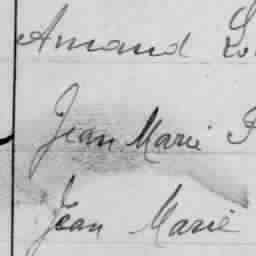 Amand
Jean Marie
Jean Marie